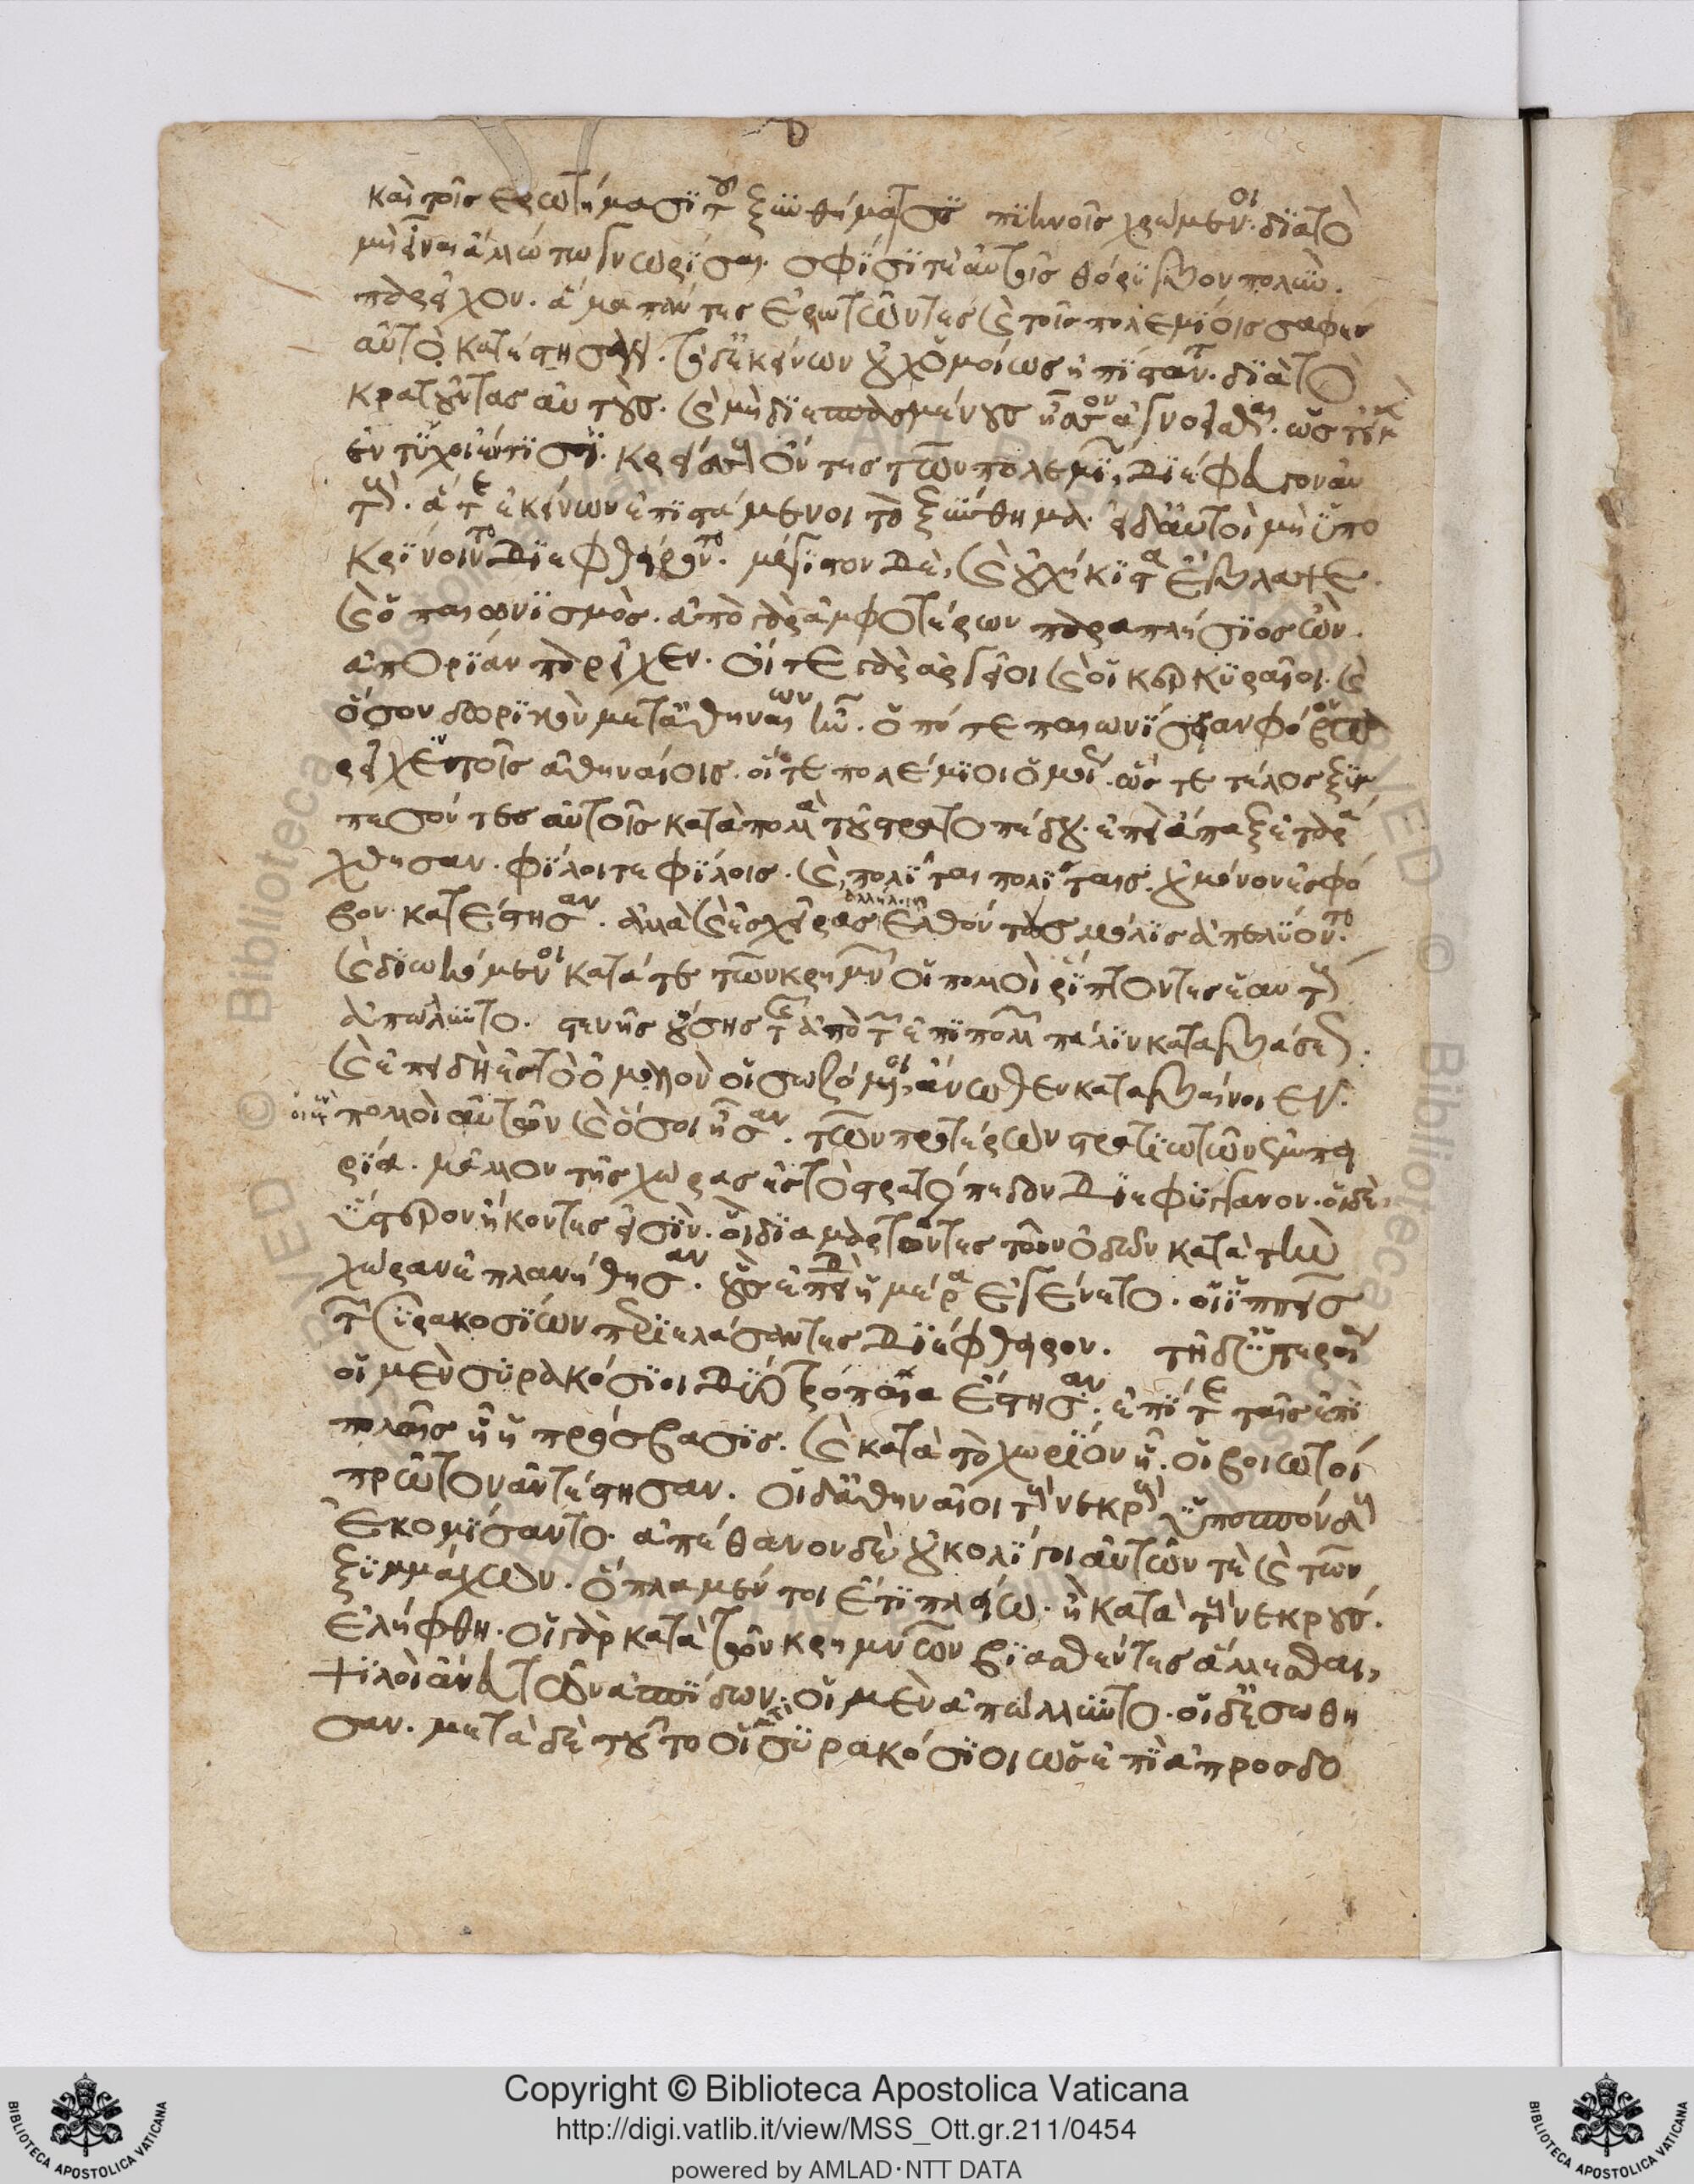 καὶ τοῖς ἐρωτήμασι τοῦ ξυνθήματος πυκνοῖς χρώμενοι. διατὸ
μὴ εἶναι ἄλλω τω γνωρίσαι. σφίσι τὲ αὐτοῖς θόρυβον πολὺν.
παρεῖχον. ἅμα πάντες ἐρωτῶντες καὶ τοῖς πολεμίοις σαφὲς
αὐτὸ κατέστησαν. τὸ δ' ἐκείνων οὐχ ὁμοίως ἠπίσταντο. διὰ τὸ
κρατοῦντας αὐτοὺς. καὶ μὴ διεσπασμένους ἧσσον ἀγνοεῖσθαι. ὥστ' εἰ μὲν
ἐντύχοιέν τισι. κρείσσους ὄντες τῶν πολεμίων, διέφευγον αὐ
τούς. ἅτε ἐκείνων ἐπιστάμενοι τὸ ξύνθημα. εἰ δ' αὐτοὶ μὴ ὑπο
κρίνοιντο διεφθείροντο. μέγιστον δὲ, καὶ οὐχ ἥκιστα ἔβλαψε.
καὶ ὁ παιωνισμὸς. ἀπὸ γὰρ ἀμφοτέρων παραπλήσιος ὢν.
ἀπορίαν παρεῖχεν. οἵ τε γὰρ ἀργεῖοι καὶ οἱ κερκυραῖοι. καὶ
ὅσον δωρικὸν μετ' ἀθηναίων ἦν. ὁπότε παιωνίσειαν φόβον πα
ρεῖχεν τοῖς ἀθηναίοις. οἵ τε πολέμιοι ὁμοίως. ὥς τε τέλος ξυμ
πεσόντες αὐτοῖς κατὰ πολλὰ τοῦ στρατοπέδου. ἐπεὶ ἅπαξ ἐταρά
χθησαν. φίλοι τε φίλοις. καὶ, πολῖται πολίταις. οὐ μόνον ἐς φό
βον κατέστησαν. ἀλλὰ καὶ ἐς χεῖρας ἀλλήλοις ἐλθόντες μόλις ἀπελύοντο.
καὶ διωκόμενοι κατά τε τῶν κρημνῶν οἱ πολλοὶ ῥίπτοντες ἑαυτοὺς
ἀπώλλυντο. στενῆς οὔσης τῆς ἀπὸ τῶν ἐπιπολῶν πάλιν καταβάσεως.
καὶ ἐπειδὴ ἐς τὸ ὁμαλὸν οἱ σωζόμενοι, ἄνωθεν καταβαίνοιεν.
οἱ μὲν πολλοὶ αὐτῶν καὶ ὅσοι ἦσαν. τῶν προτέρων στρατιωτῶν ἐμπει
ρία. μᾶλλον τῆς χώρας ἐς τὸ στρατόπεδον διεφύγγανον. οἱ δὲ
ὕστερον ἥκοντες εἰσὶν. οἳ διαμαρτόντες τῶν ὁδῶν κατὰ τὴν
χώραν ἐπλανήθησαν. οὓς ἐπειδὴ ἡμέρα ἐγένετο. οἱ ἱππεῖς
τῶν συρακοσίων περιελάσαντες διέφθειρον. τῇ δ' ὑστεραία
οἱ μὲν συρακόσιοι δύο τρόπαια ἔστησαν. ἐπί τε ταῖς ἐπι
πολαῖς ᾗ ἡ πρόσβασις. καὶ κατὰ τὸ χωρίον ᾗ. οἱ βοιωτοὶ
πρῶτον ἀντέστησαν. οἱ δ' ἀθηναῖοι τοὺς νεκροὺς ὑποσπόνδους
ἐκομίσαντο. ἀπέθανον δὲ οὐκ ὀλίγοι αὐτῶν τὲ καὶ τῶν
ξυμμάχων. ὅπλα μέν τοι ἔτι πλείω. ἢ κατὰ τοὺς νεκρούς.
ἐλήφθη. οἱ γὰρ κατὰ τῶν κρημνῶν βιασθέντες ἅλλεσθαι,
ψιλοὶ ἄνευ τῶν ἀσπίδων. οἱ μὲν ἀπώλλυντο. οἱ δ' ἐσώθη
σαν. μετὰ δὲ τοῦτο οἱ συρακόσιοι ὡς ἐπὶ ἀπροσδο
BIBLIOTECA APOSTOLICA VATICANA
Copyright © Biblioteca Apostolica Vaticana
http://digi.vatlib.it/view/MSS_Ott.gr.211/0454
powered by AMLAD·NTT DATA
BIBLIOTECA APOSTOLICA VATICANA